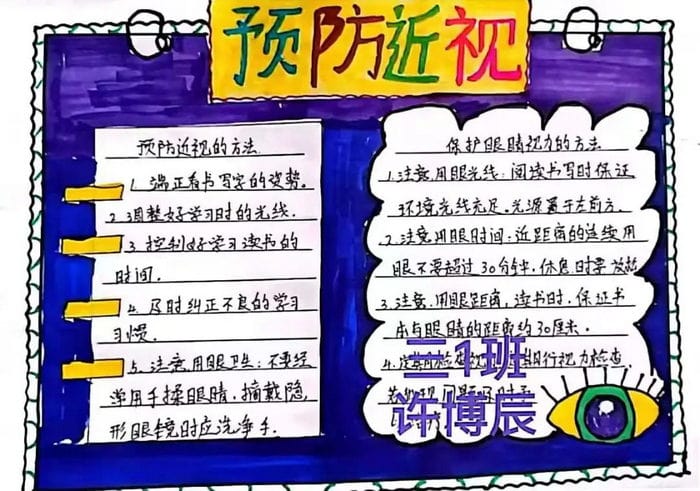 预防近视
预防近视的方法
1. 端正看书写字的姿势。
2. 调整好学习时的光线.
3. 控制好学习读书的
时间.
4. 及时纠正不良的学习
习惯.
5. 注意用眼卫生: 不要经
常用手揉眼睛, 摘戴隐
形眼镜时应洗净手.
保护眼睛视力的方法
1. 注意用眼光线: 阅读书写时保证
环境光线充足, 光源置于左前方.
2. 注意用眼时间: 近距离的连续用
眼不要超过30分钟, 休息时要放松
3. 注意用眼距离, 读书时, 保证书
本与眼睛的距离约30厘米.
4. 视力检查
三1班
许博辰